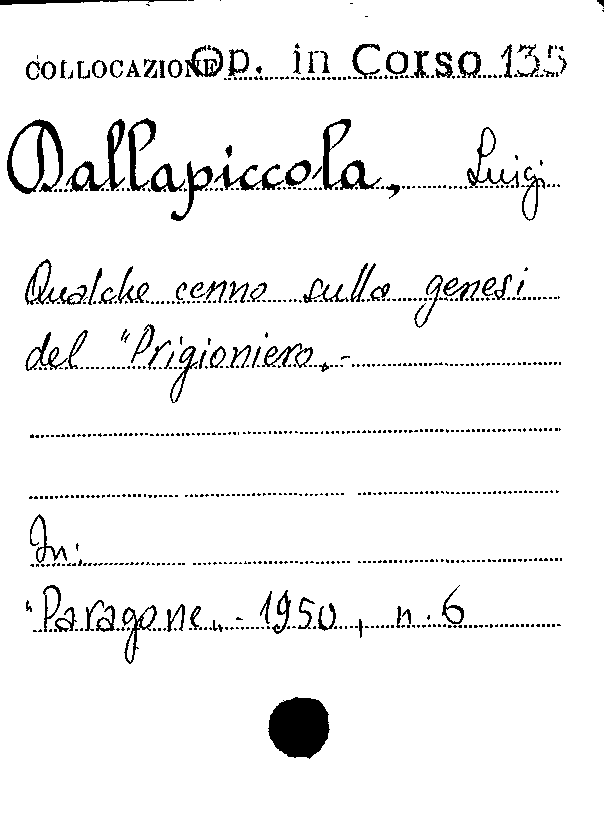 COLLOCAZIONE Op. in Corso 135
Dallapiccola, Luigi
Qualche cenno sulla genesi
del "Prigioniero„-
In:
"Paragone„ - 1950, n. 6